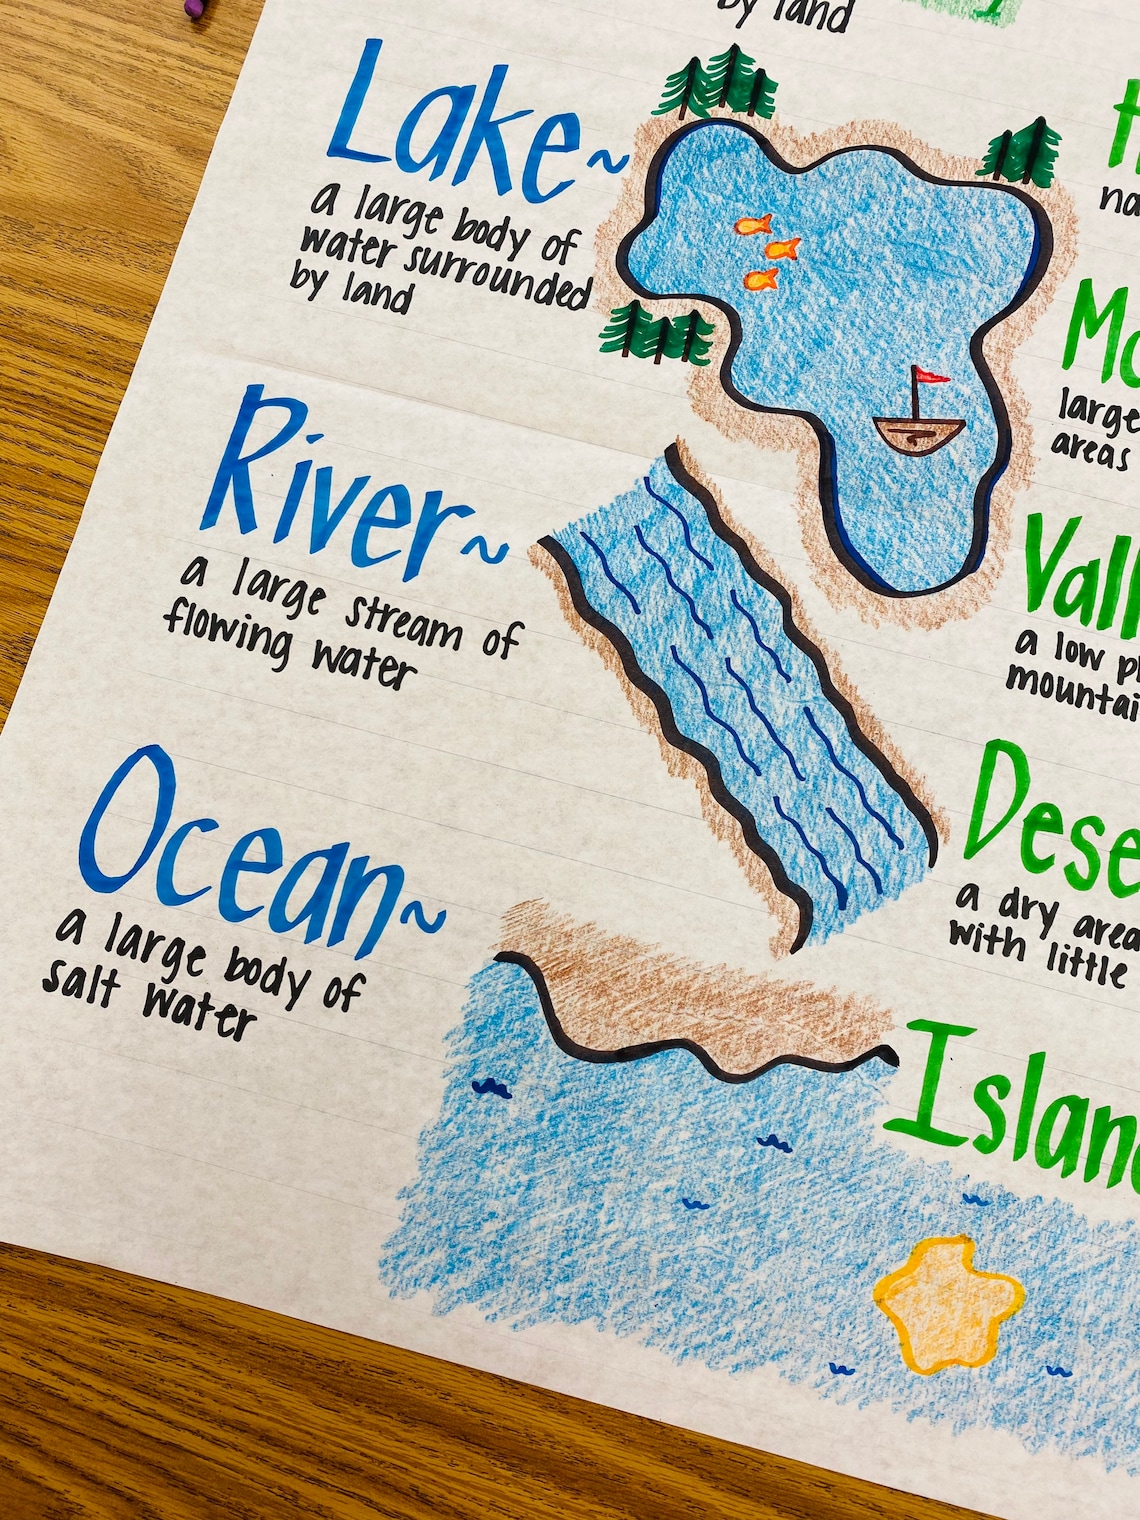 by land
Lake~
a large body of
water surrounded
by land
River~
a large stream of
flowing water
Ocean~
a large body of
salt water
large
areas
a low
Dese
a dry area
with little
Islan